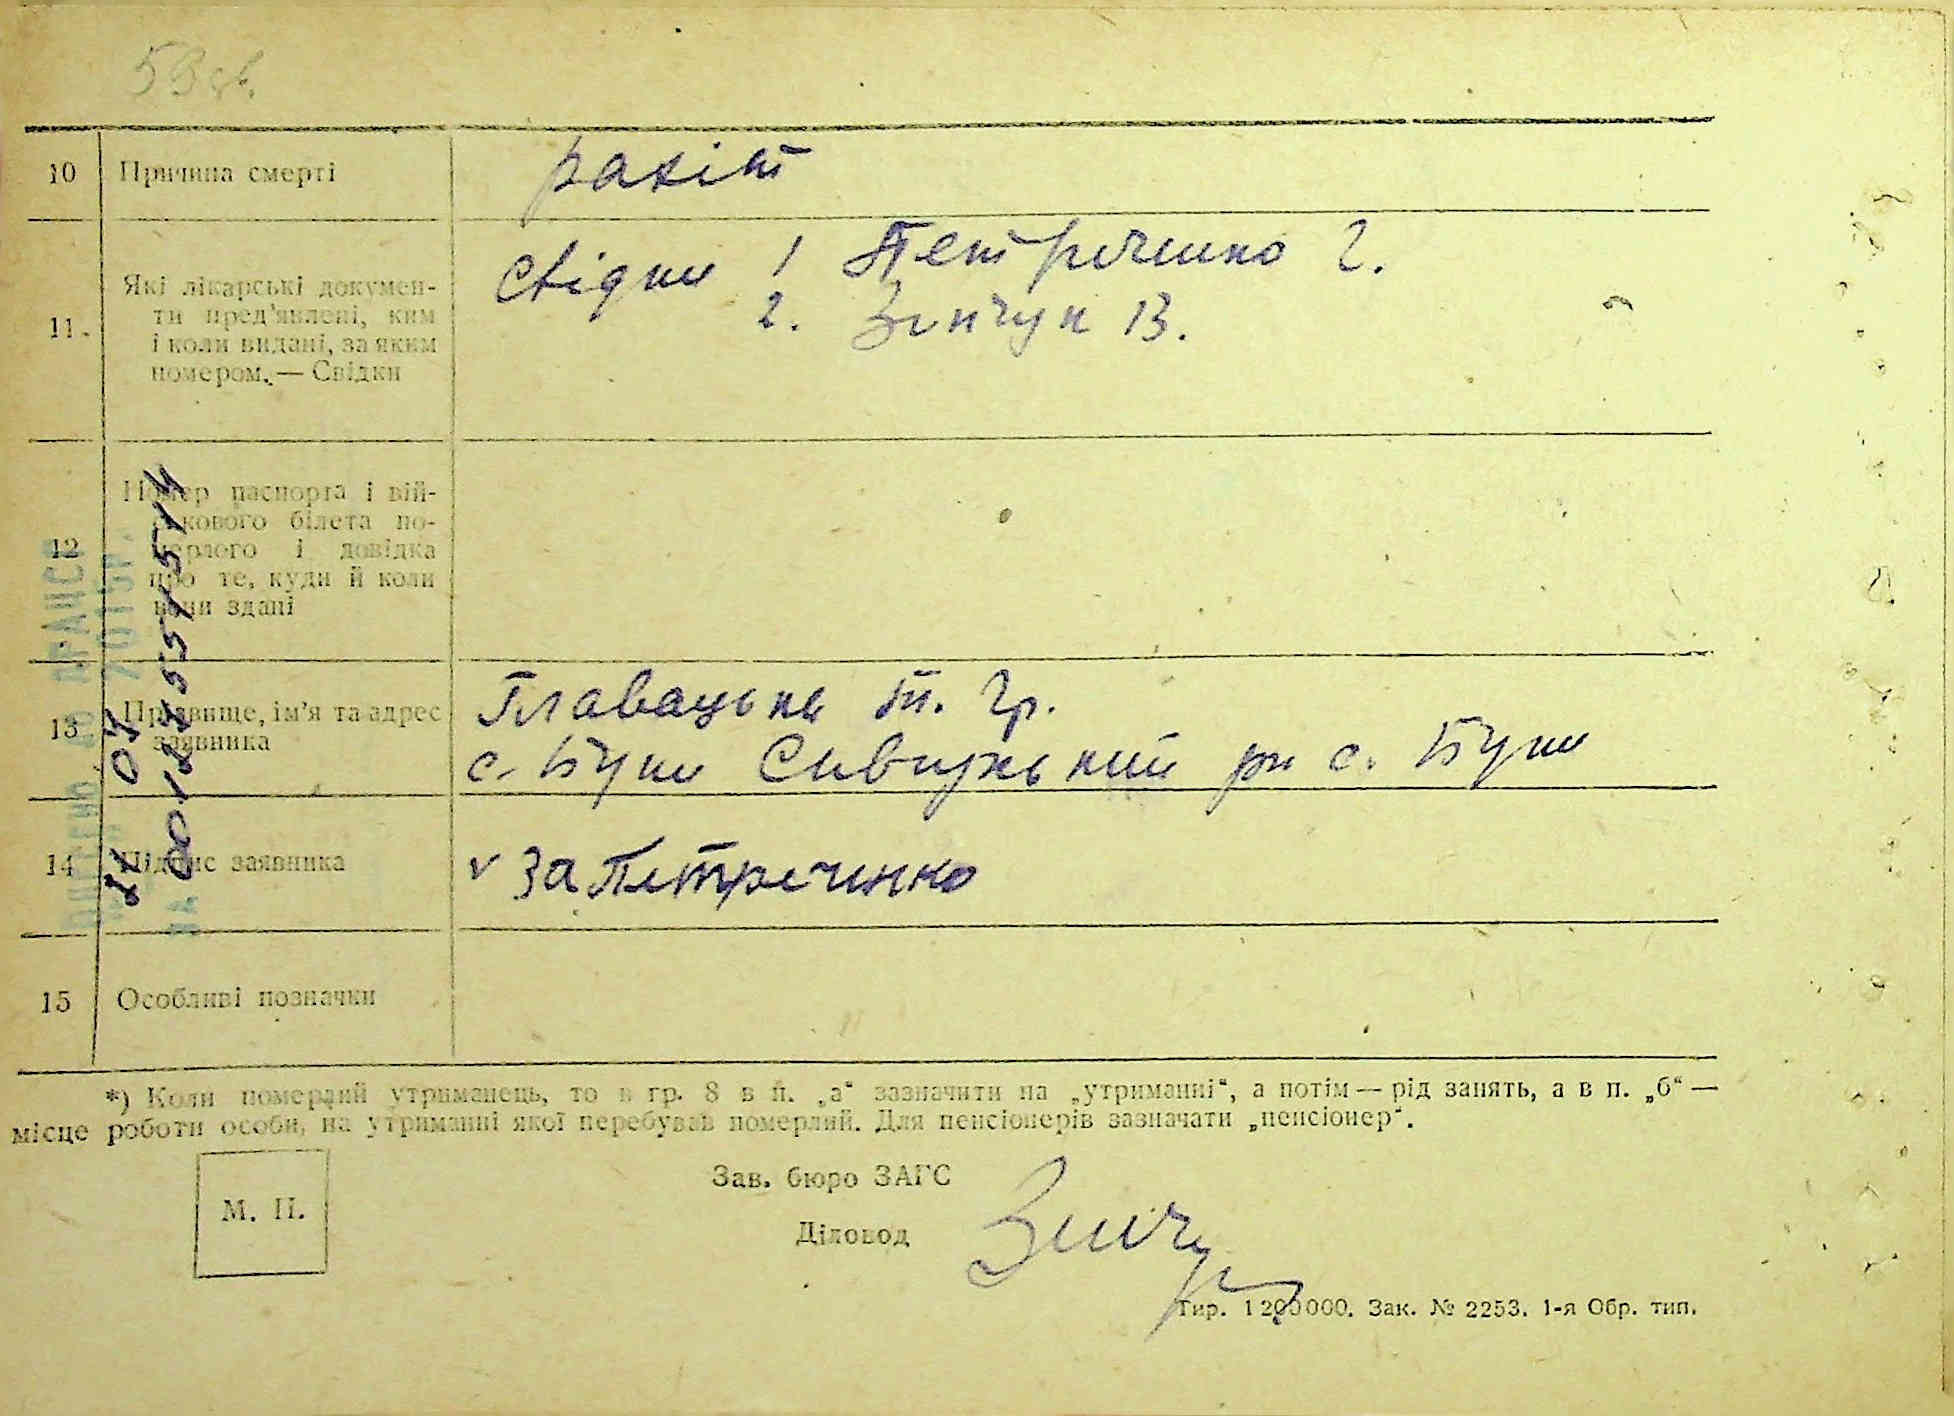 59 зв.
10 Причина смерті рахіт
11. Які лікарські докумен-
ти пред'явлені, ким
і коли видані, за яким
номером. — Свідки
Свідки 1 Петреченко Г.
2. Зінчук В.
12 Номер паспорта і вій-
ськового білета по-
мерлого і довідка
про те, куди й коли
вони здані
13 Прізвище, ім'я та адрес
заявника
Главацька Т. Гр.
с. Буки Сквирський рн с. Буки
14 Підпис заявника v За Петреченко
15 Особливі позначки
*) Коли померлий утриманець, то в гр. 8 в п. „а“ зазначити на „утриманні“, а потім — рід занять, а в п. „б“ —
місце роботи особи, на утриманні якої перебував померлий. Для пенсіонерів зазначати „пенсіонер“.
М. П.
Зав. бюро ЗАГС
Діловод
Тир. 1200000. Зак. № 2253. 1-я Обр. тип.
ДРАЦСУ
НА 00184557514